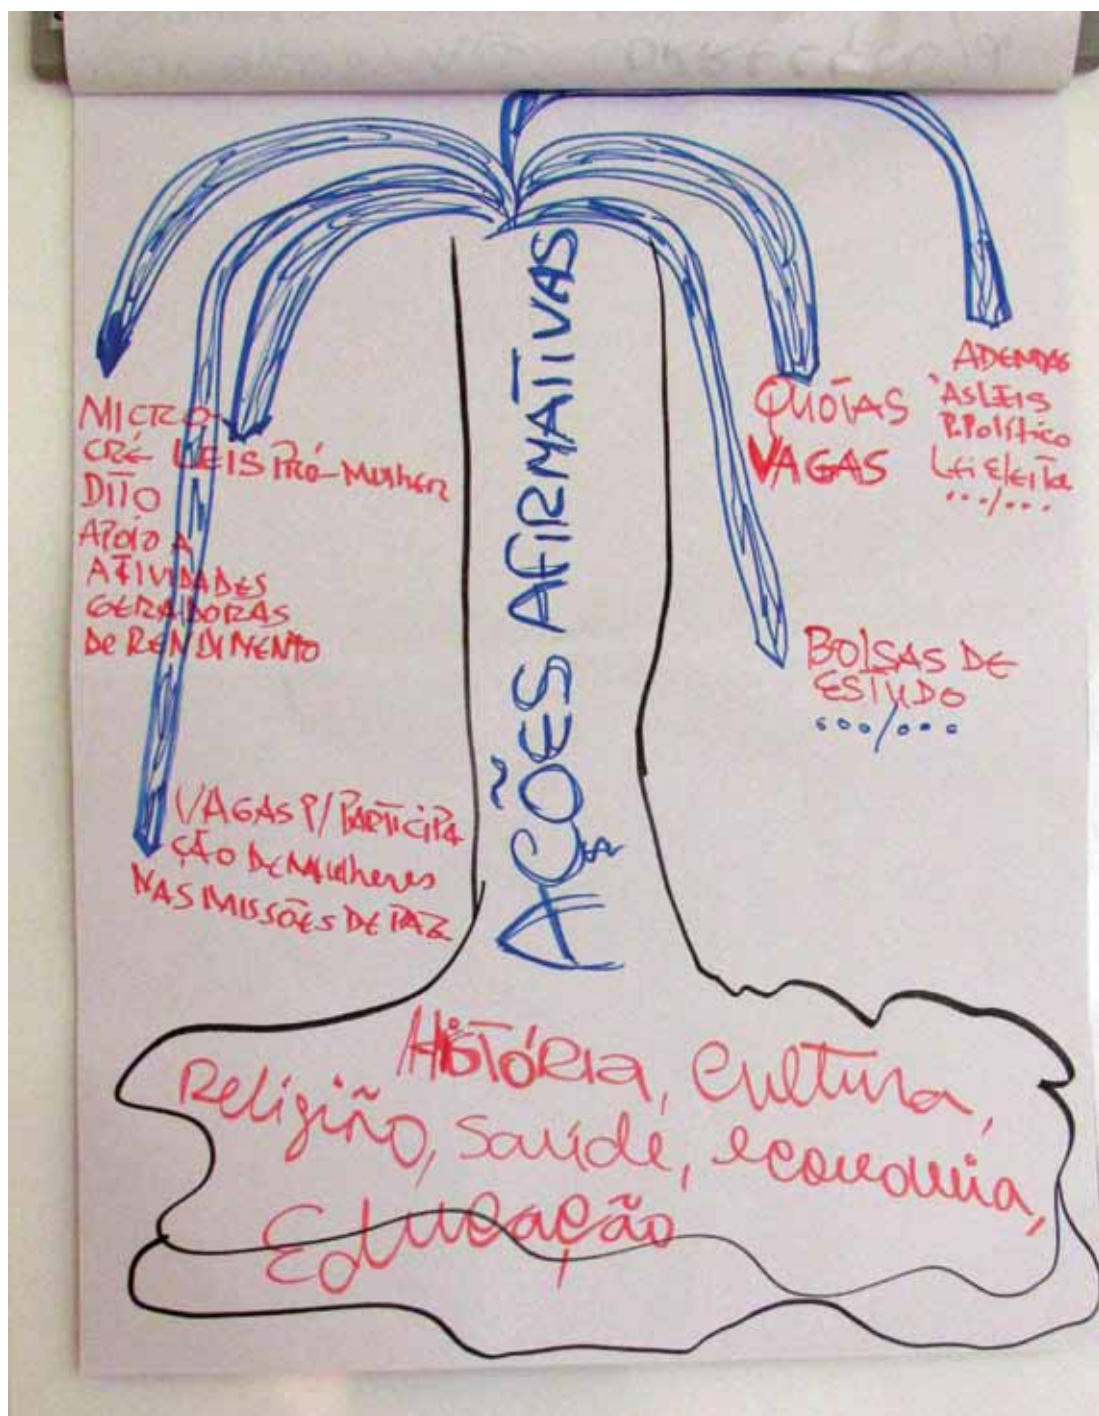 AÇÕES AFIRMATIVAS
MICRO-
CRÉ
DITO
APOIO A
ATIVIDADES
GERADORAS
DE RENDIMENTO
LEIS PRÓ-MULHER
VAGAS P/ PARTICIPA
ÇÃO DE MULHERES
NAS MISSÕES DE PAZ
QUOTAS
VAGAS
ADENDAS
ÀS LEIS
P. Político
Lei Eleita
.../...
BOLSAS DE
ESTUDO
.../...
HISTÓRIA, Cultura,
Religião, saúde, economia,
Educação